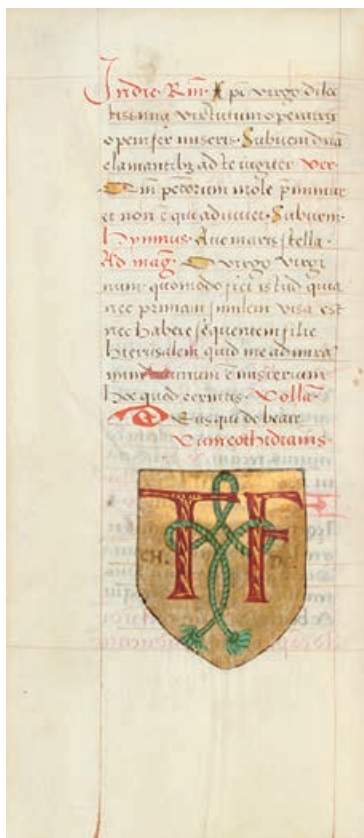 In die. Rm. Xpi virgo dilec
tissima virtutum operatrix
opem fer miseris. Subueni dna
clamantibz ad te iugiter. Ver.
Qm peccatorum mole pmimur
et non e qui adiuuet. Subueni.
Hymnus. Aue maris stella.
Ad mag. O virgo virgi
num quomodo fiet istud quia
nec primam similem visa est
nec habere sequentem filie
hierusalem quid me admira
mini diuinum e misterium
hoc quod cernitis. Colla.
Deus qui de beate
Vt in cothidianis.
T F
CH. DE